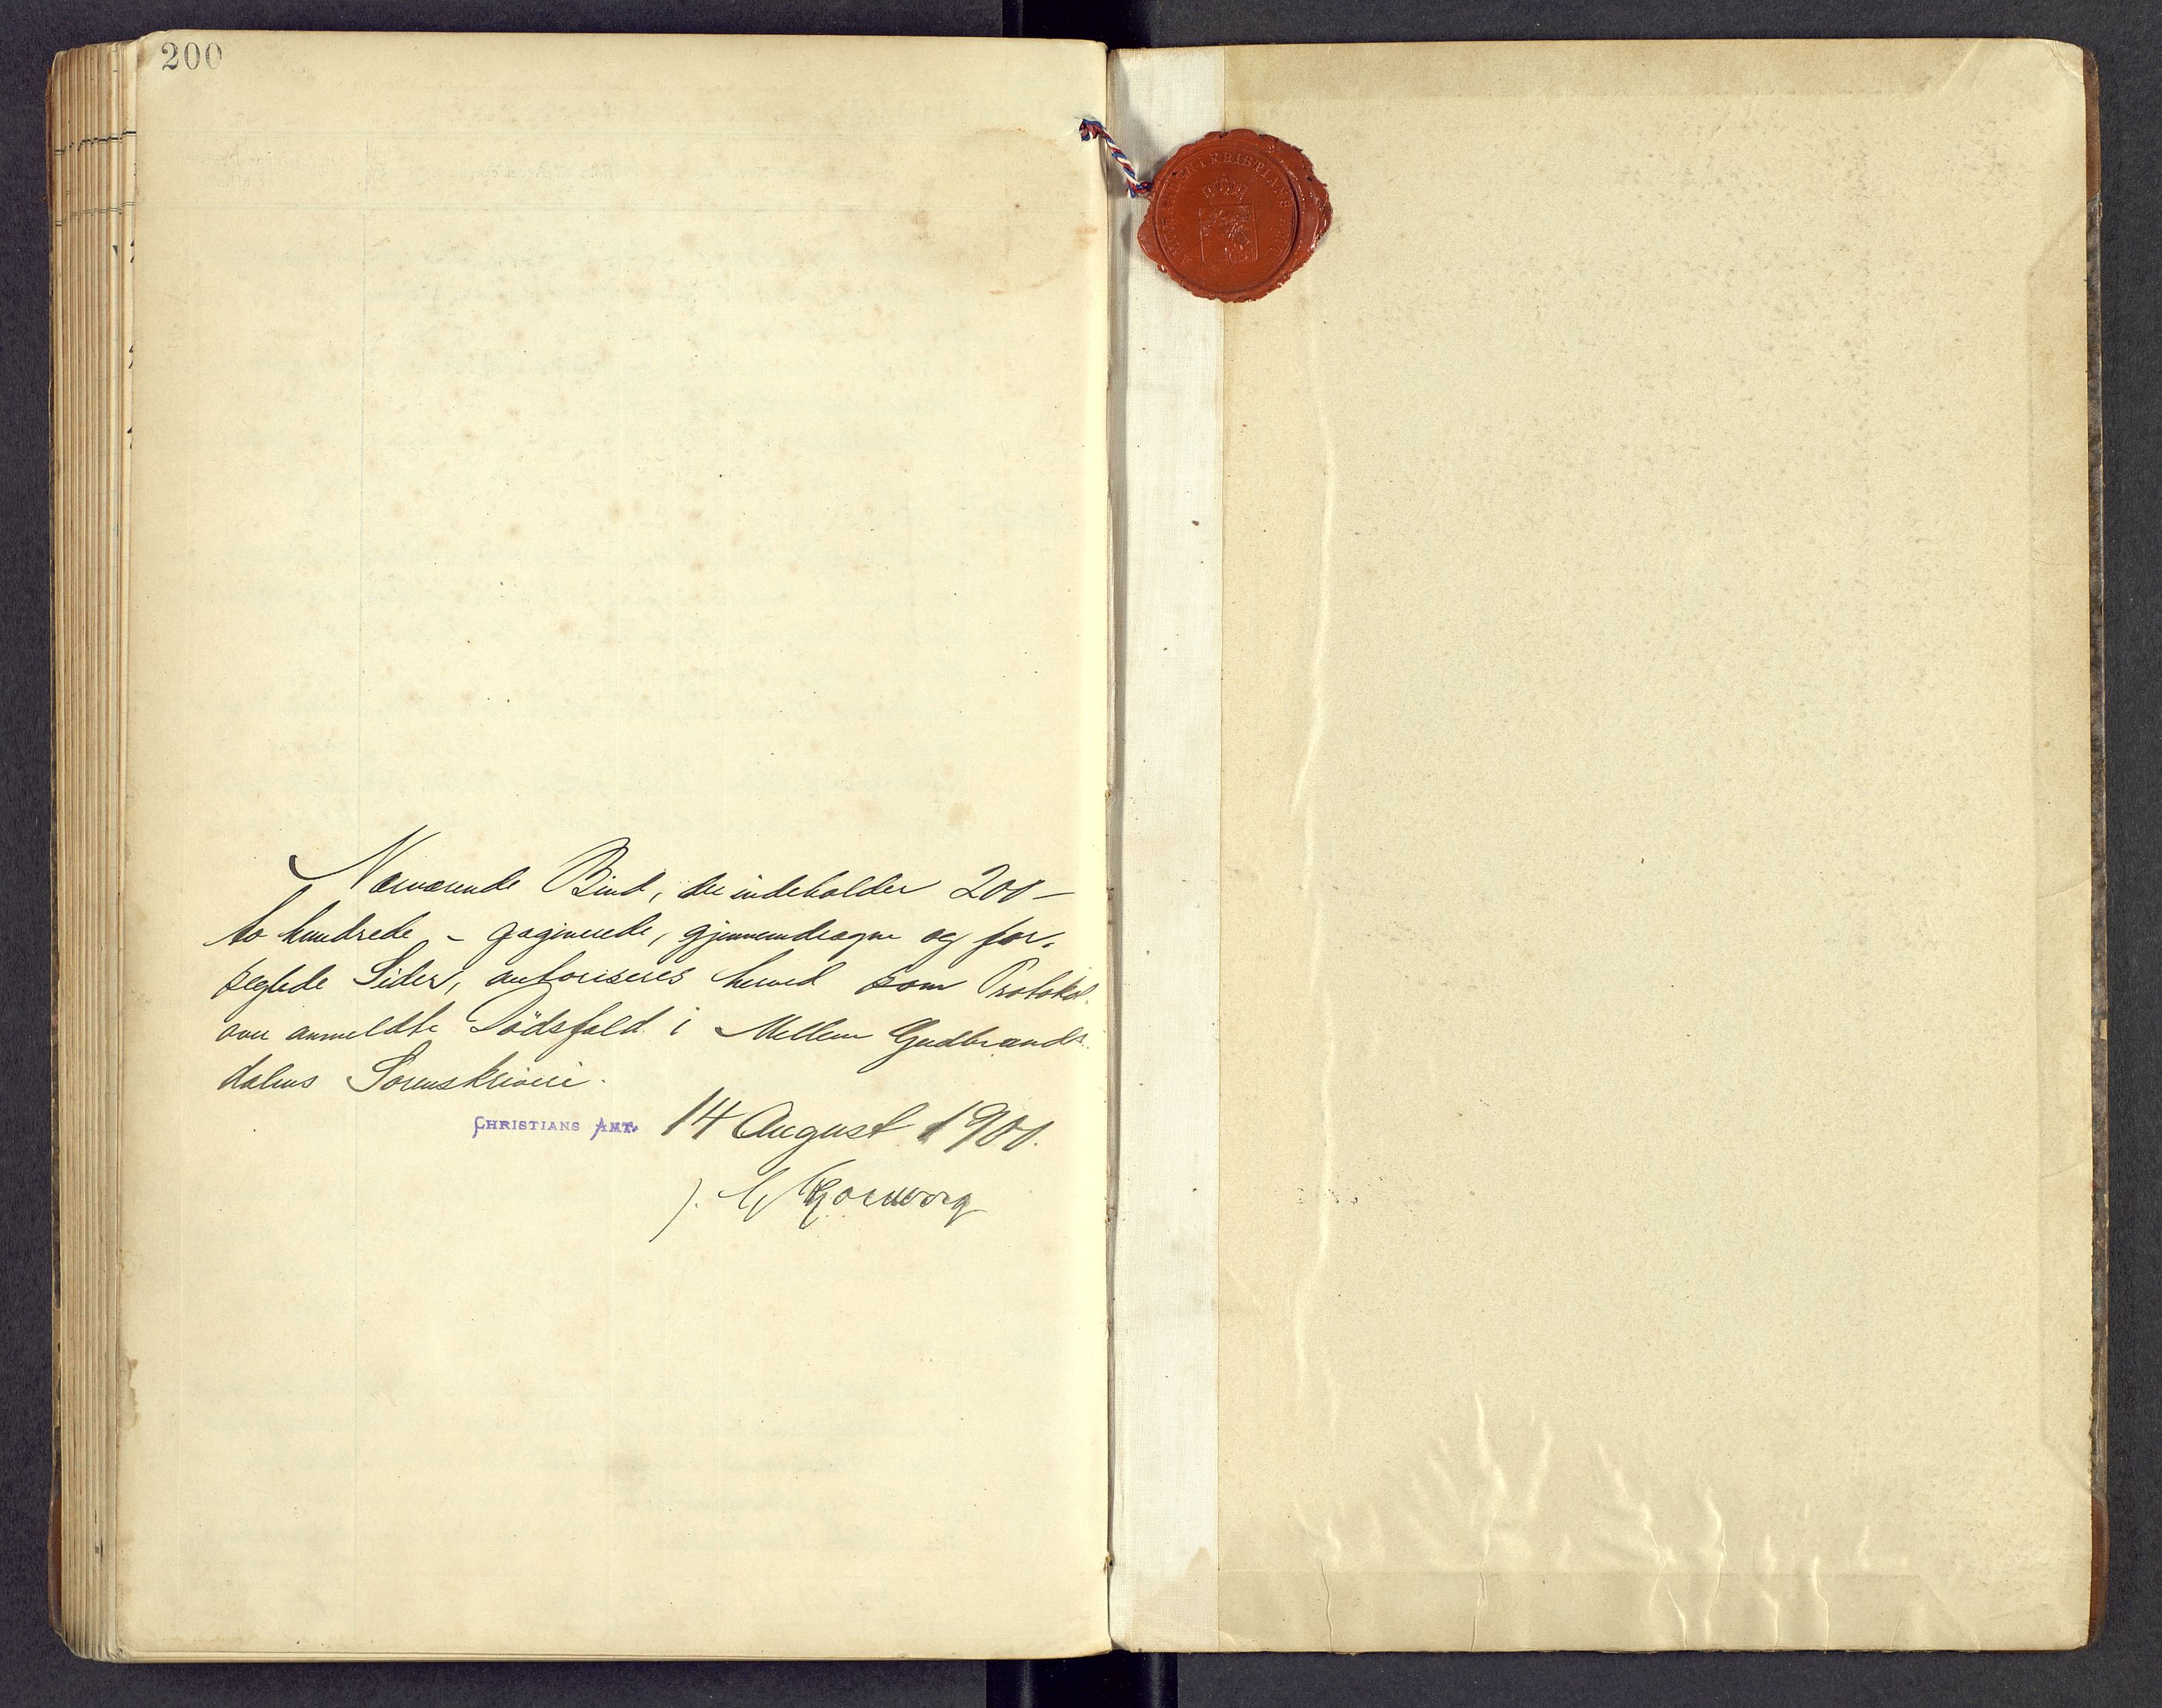 200
Nærværende Bind, der indeholder 200 –
to hundrede – paginerede, gjennemdragne og for-
seglede Sider, autoriseres herved som Protokol
over anmeldte Dødsfald i Mellem Gudbrands-
dalens Sorenskriveri.
CHRISTIANS AMT. 14 August 1900.
KRISTIANS